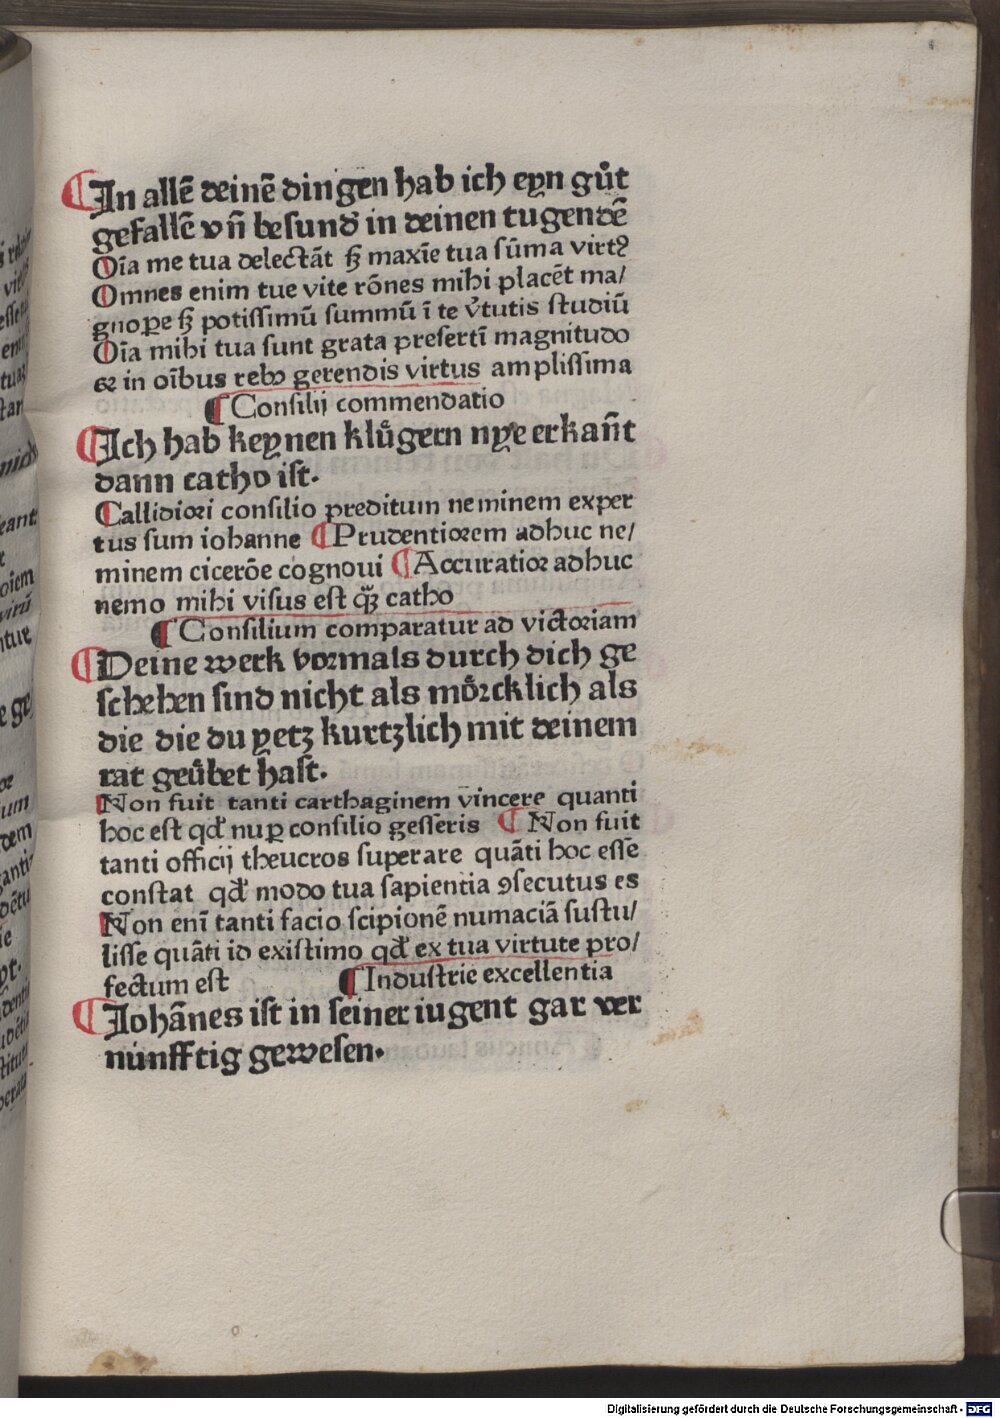 ¶ In allē deinē dingen hab ich eyn gůt
gefallē vn̄ besund̕ in deinen tugendē
Oīa me tua delectāt sꝫ maxīe tua sūma virtꝰ
Omnes enim tue vite rōnes mihi placēt ma/
gnoꝑe sꝫ potissimū summū ī te v̕tutis studiū
Oīa mihi tua sunt grata presertī magnitudo
et in oībus rebꝰ gerendis virtus amplissima
¶ Consilij commendatio
¶ Ich hab keynen klůgern nye erkan̄t
dann catho ist.
Callidiori consilio preditum neminem exper
tus sum iohanne ¶ Prudentiorem adhuc ne/
minem cicerōe cognoui ¶ Accuratior adhuc
nemo mihi visus est qꝫ̄ catho
¶ Consilium comparatur ad victoriam
¶ Deine werk vormals durch dich ge
schehen sind nicht als mȯrcklich als
die die du yetz kurtzlich mit deinem
rat geůbet hast.
Non fuit tanti carthaginem vincere quanti
hoc est qd̕ nuꝑ consilio gesseris ¶ Non fuit
tanti officij theucros superare quāti hoc esse
constat qd̕ modo tua sapientia ꝯsecutus es
Non enī tanti facio scipionē numaciā sustu/
lisse quāti id existimo qd̕ ex tua virtute pro/
fectum est ¶ Industrie excellentia
¶ Johānes ist in seiner iugent gar ver
nunfftig gewesen.
Digitalisierung gefördert durch die Deutsche Forschungsgemeinschaft - DFG